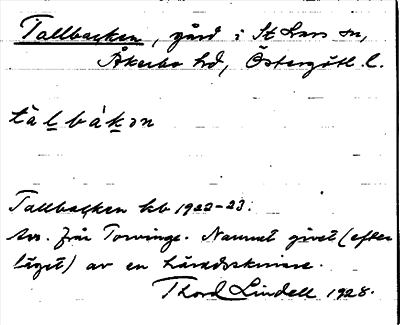 Tallbacken, gård i St Lars sn,
Åkerbo hd, Östergötl. l.
tàl bàkən
Tallbacken kb 1922-23.
Avs. från Torvinge. Namnet givet (efter
läget) av en häradsskrivare.
Thord Lindell 1928.